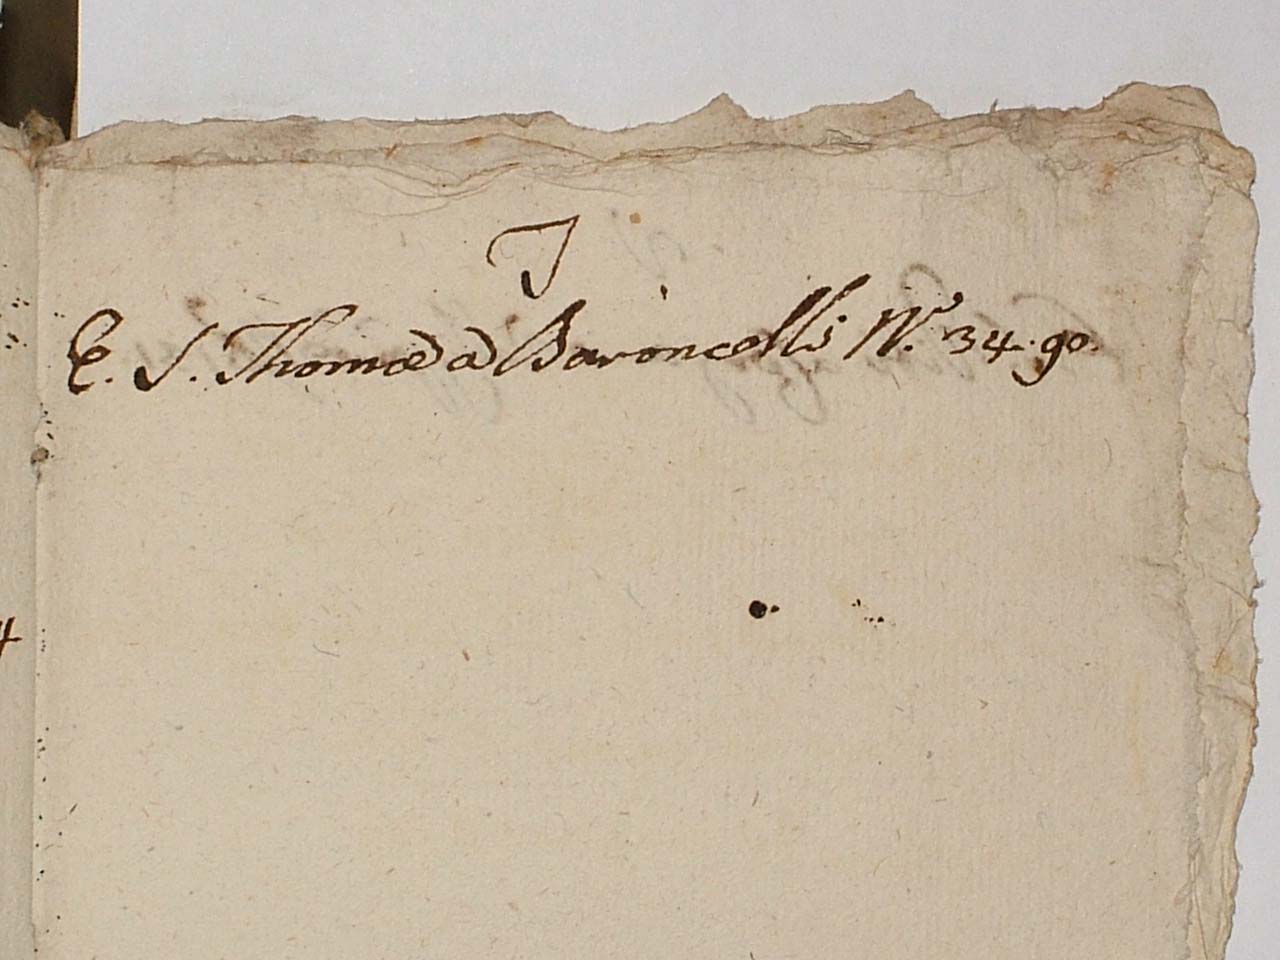 J
E. S. Thomæ a Baroncelli N.° 34.90.
4